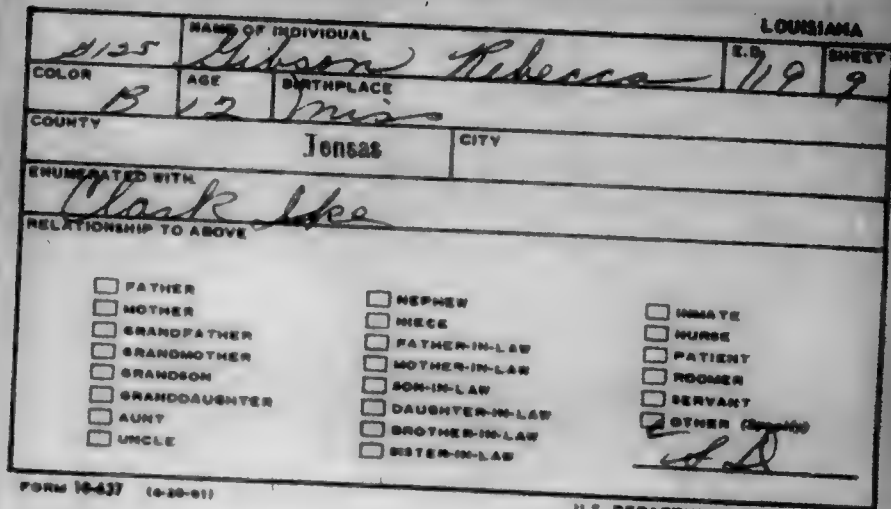 LOUISIANA
NAME OF INDIVIDUAL E.D. SHEET
Gibson Rebecca 119 9
COLOR AGE BIRTHPLACE
B 12 Miss
COUNTY Tensas CITY
ENUMERATED WITH
Clark Ike
RELATIONSHIP TO ABOVE
FATHER
MOTHER
GRANDFATHER
GRANDMOTHER
GRANDSON
GRANDDAUGHTER
AUNT
UNCLE
NEPHEW
NIECE
FATHER-IN-LAW
MOTHER-IN-LAW
SON-IN-LAW
DAUGHTER-IN-LAW
BROTHER-IN-LAW
SISTER-IN-LAW
INMATE
NURSE
PATIENT
ROOMER
SERVANT
OTHER (Specify)
S D
FORM 10-637 (6-20-61)